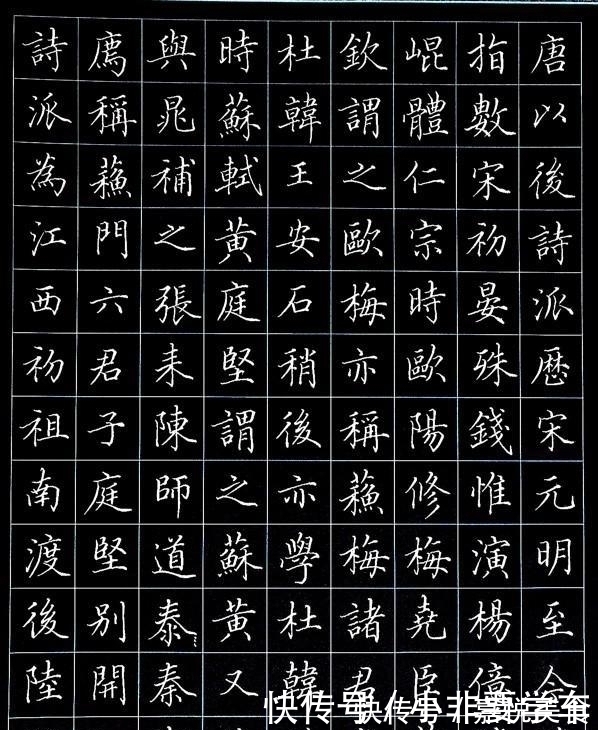 唐以後詩派歷宋元明至今
指數宋初晏殊錢惟演楊億
崐體仁宗時歐陽修梅堯臣
欽謂之歐梅亦稱蘓梅諸君
杜韓王安石稍後亦學杜韓
時蘇軾黃庭堅謂之蘇黃又
與晁補之張耒陳師道泰秦
廌稱蘓門六君子庭堅別開
詩派為江西初祖南渡後陸
快传号
快传号 / 嘉悦美食